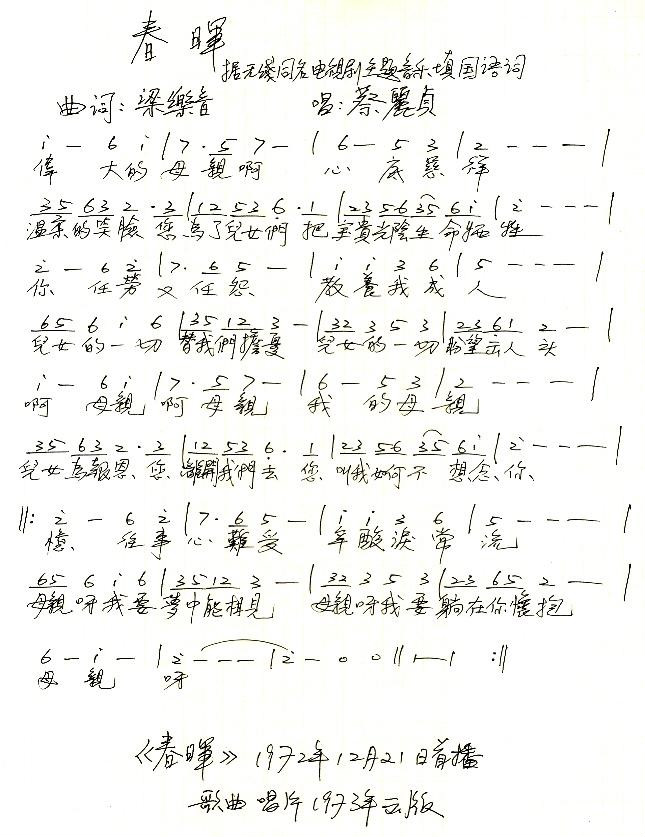 春暉
据无线同名电视剧主题音乐填国语词
曲词：梁樂音 唱：蔡麗貞
i － 6 i | 7 · 5 7 － | 6 － 5 3 | 2 － － － |
偉 大的 母 親 啊 心 底 慈 祥
35 63 2 · 3 | 12 53 6 · 1 | 23 56 35 6i | 2 － － － |
温柔的笑臉 您 為了兒女們 把 宝貴光陰生 命牺 牲
2 － 6 2 | 7 · 6 5 － | i i 3 6 | 5 － － － |
你 任劳 又 任 怨 教 養 我 成 人
65 6 i 6 | 35 12 3 － | 32 3 5 3 | 23 61 2 － |
兒女 的 一 切 替我們擔憂 兒女 的 一 切 盼望出人 头
i － 6 i | 7 · 5 7 － | 6 － 5 3 | 2 － － － |
啊 母親 啊 母 親 我 的 母 親
35 63 2 · 3 | 12 53 6 · 1 | 23 56 35 6i | 2 － － － |
兒女 為報恩 您 離開我們去 您 叫我如何不 想念 你
‖: 2 － 6 2 | 7 · 6 5 － | i i 3 6 | 5 － － － |
憶 往事 心 難 受 辛 酸 淚 常 流
65 6 i 6 | 35 12 3 － | 32 3 5 3 | 23 65 2 － |
母親 呀 我 要 夢中能相見 母親 呀 我 要 躺在你懷抱
6 － i － | 2 － － － | 2 － 0 0 ‖ :‖
母 親 呀
《春暉》1972年12月21日首播
歌曲唱片1973年出版